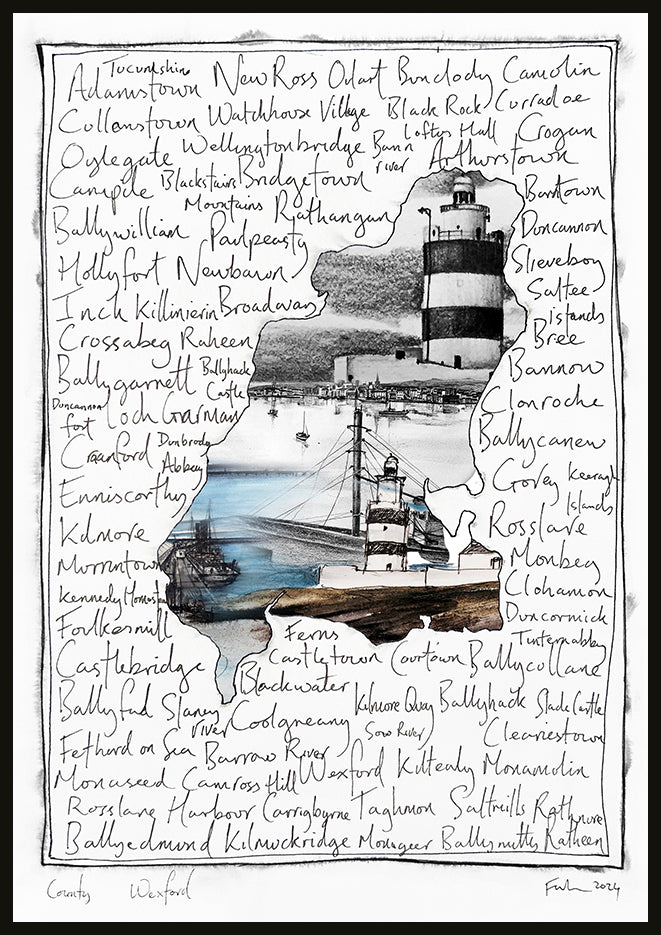 Tucumshine
Adamstown New Ross Odart Bunclody Camolin
Cullenstown Watchhouse Village Black Rock Curracloe
Oylegate Wellingtonbridge Bann river Loftus Hall Crogan
Campile Blackstairs Mountains Bridgetown Arthurstown
Barntown
Ballywillian Paulpeasty Rathangan Duncannon
Hollyfort Newbawn Slieveboy
Saltee Islands
Inch Killinierin Broadway
Crossabeg Raheen Bree
Ballygarrett Ballyhack Castle Bannow
Duncannon fort Loch Garman Clonroche
Craanford Dunbrody Abbey Ballycanew
Enniscorthy Gorey Keeragh Islands
Kilmore Rosslare
Murrintown Monbeg
Kennedy Homestead Clohamon
Foulkesmill Ferns Duncormick
Tinternabbey
Castlebridge Castletown Courtown Ballycullane
Blackwater
Ballyfad Slaney river Coolgreany Kilmore Quay Ballyhack Slade Castle
Sow River Cleariestown
Fethard on Sea Barrow River
Monaseed Camross Hill Wexford Kiltealy Monamolin
Rosslare Harbour Carrigbyrne Taghmon Saltmills Rathnure
Ballyedmund Kilmuckridge Monageer Ballymitty Ratheen
County Wexford
2024